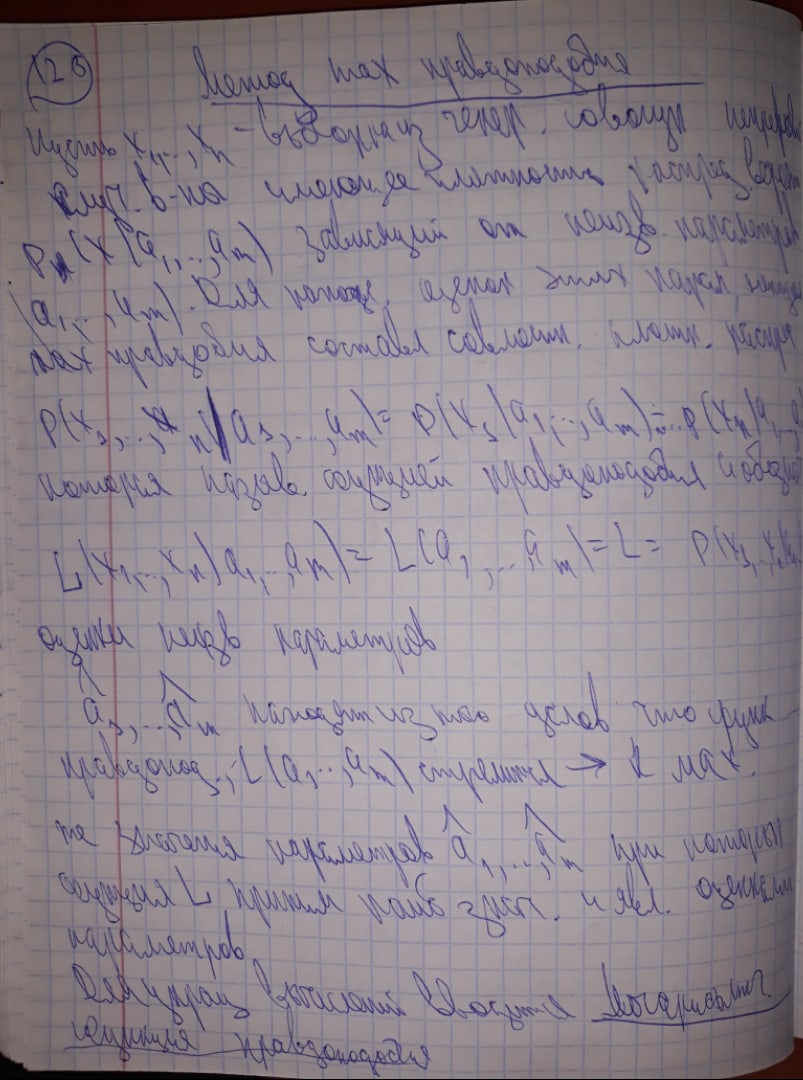 126
Метод max правдоподобия
Пусть x₁,..,xₙ - выборка из генер. совокуп
случ. в-на имеющее плотность распред.
Pₙ(x|a₁,..,aₘ) зависящий от неизв. параметров
(a₁,..,aₘ). Для нахожд. оценок этих парам.
max правдобия составл совместн. плотн. распр
P(x₁,..,xₙ|a₁,..,aₘ)= P(x₁|a₁,..,aₘ)·..·p(xₙ|a₁,..,a
которая назыв. функцией правдоподобия и обозн
L(x₁,..,xₙ|a₁,..,aₘ)= L(a₁,..,aₘ)=L= P(x₁,..
оценки неизв параметров
â₁,..,âₘ находят из того услов что функ
правдопод., L(a₁,..,aₘ) стремится → к max.
те значения параметров â₁,..,âₘ при которых
функция L приним наиб знач. и явл. оценками
параметров
Для упрощ вычислений вводится логарифмич
функция правдоподобия